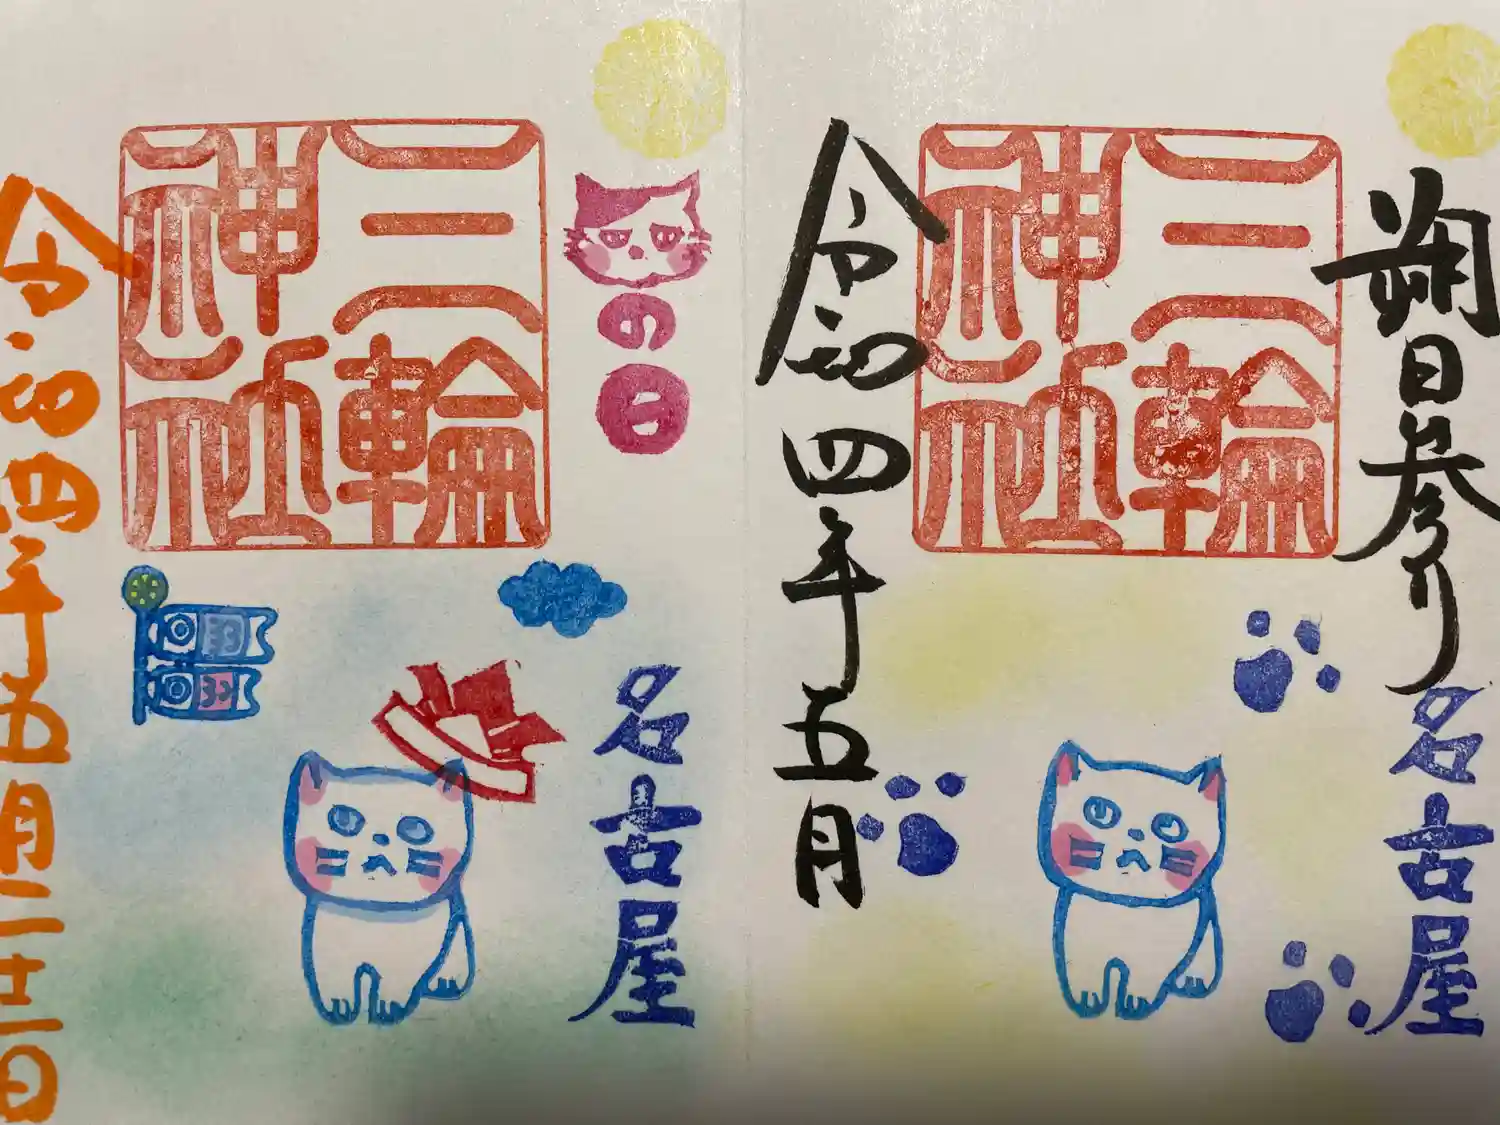 朔日参り
名古屋
三輪神社
令和四年五月
の日
名古屋
三輪神社
令和四年五月二十二日